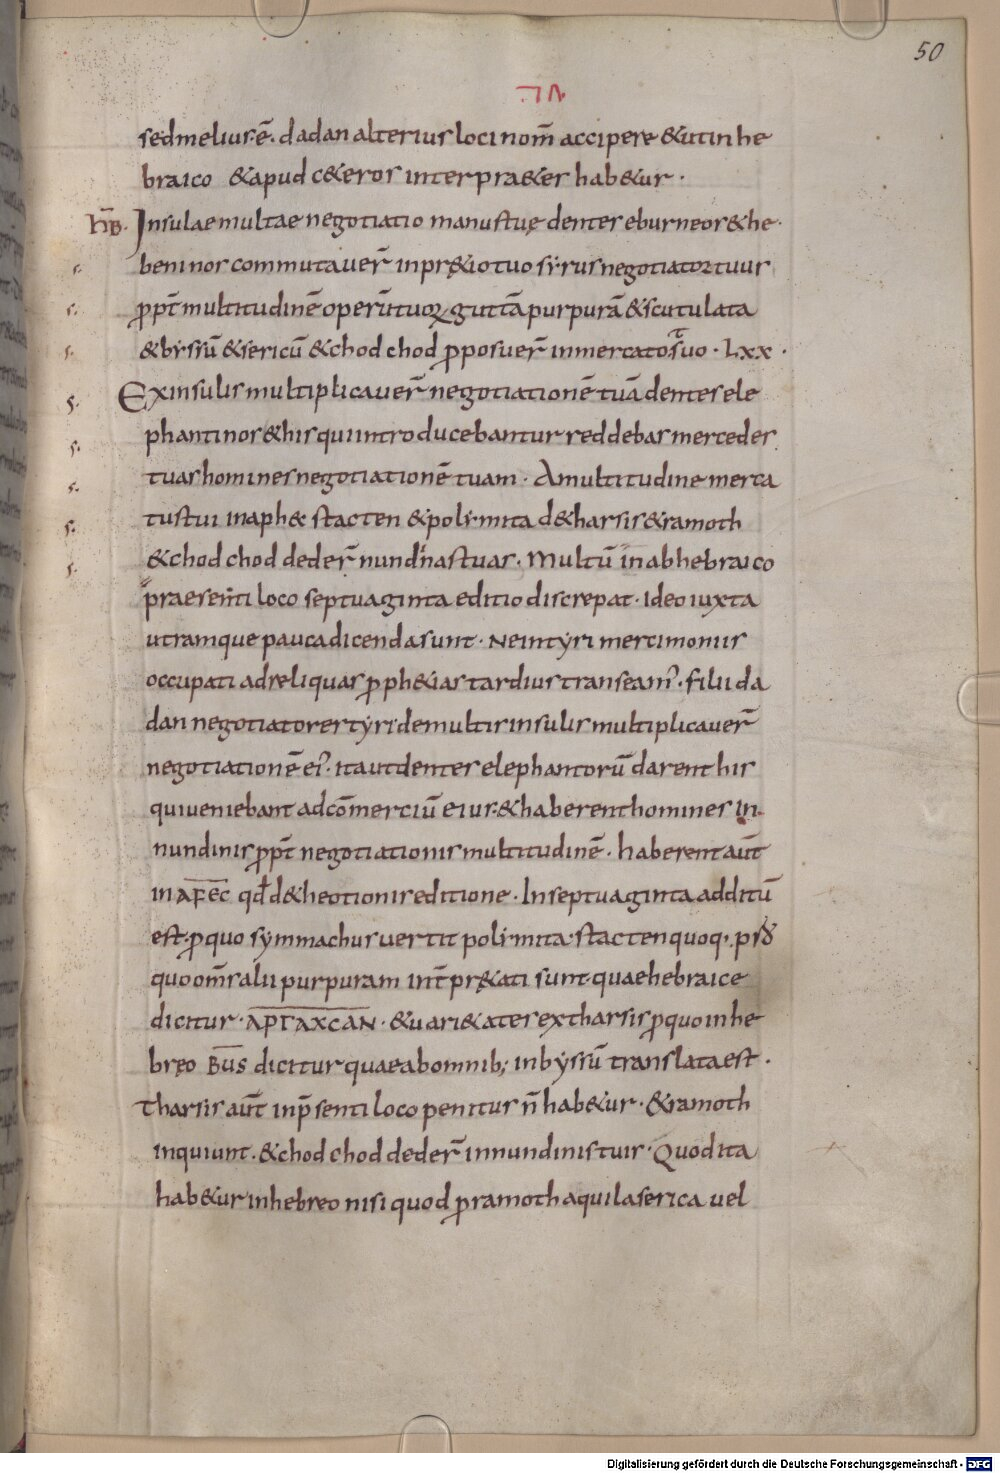 50
sed melius ē. dadan alterius loci nom̄ accipere &ut in he
braico &apud c&eros interpra&es hab&ur.
hb̄. Insulae multae negotiatio manus tuę dentes eburneos &he
beninos commutauer̄ in pr&io tuo syrus negotiator tuus
ꝓpt̄ multitudinē operū tuoꝝ, guttā purpurā &scutulata
&byssū &sericū &chod chod ꝓposuer̄ in mercato suo. Lxx.
Ex insulis multiplicauer̄ negotiationē tuā dentes ele
phantinos &his qui introducebantur reddebas mercedes
tuas homines negotiationē tuam. A multitudine merca
tus tui in aphec stacten &polymita d&harsis &ramoth
&chod chod deder̄ nundinas tuas. Multū in ab hebraico
praesenti loco septuaginta editio discrepat. Ideo iuxta
utramque pauca dicenda sunt. Ne in tyri mercimoniis
occupati ad reliquas ꝓph&ias tardius transeam᾽. filii da
dan negotiatores tyri de multis insulis multiplicauer̄
negotiationē ei᾽. ita ut dentes elephantorū darent his
qui ueniebant ad cōmerciū eius. &haberent homines in
nundinis ꝓpt̄ negotiationis multitudinē. haberent aūt
in AFEC qd̄ d&heotionis editione. In septuaginta additū
est. ꝓ quo symmachus uertit polymita. stacten quoq;
quo om̄s alii purpuram int̄pr&ati sunt. quae hebraice
dicitur. APΓAXCAN. &uari&ates ex tharsis ꝓ quo in he
bręo BUS dicitur quae ab omnib; in byssū translata est.
Tharsis aūt in p̄senti loco penitus n̄ hab&ur. &ramoth
inquiunt. &chod chod deder̄ in nundinis tuis. Quod ita
hab&ur in hebreo nisi quod ꝓ ramoth aquila serica uel
Digitalisierung gefördert durch die Deutsche Forschungsgemeinschaft - DFG